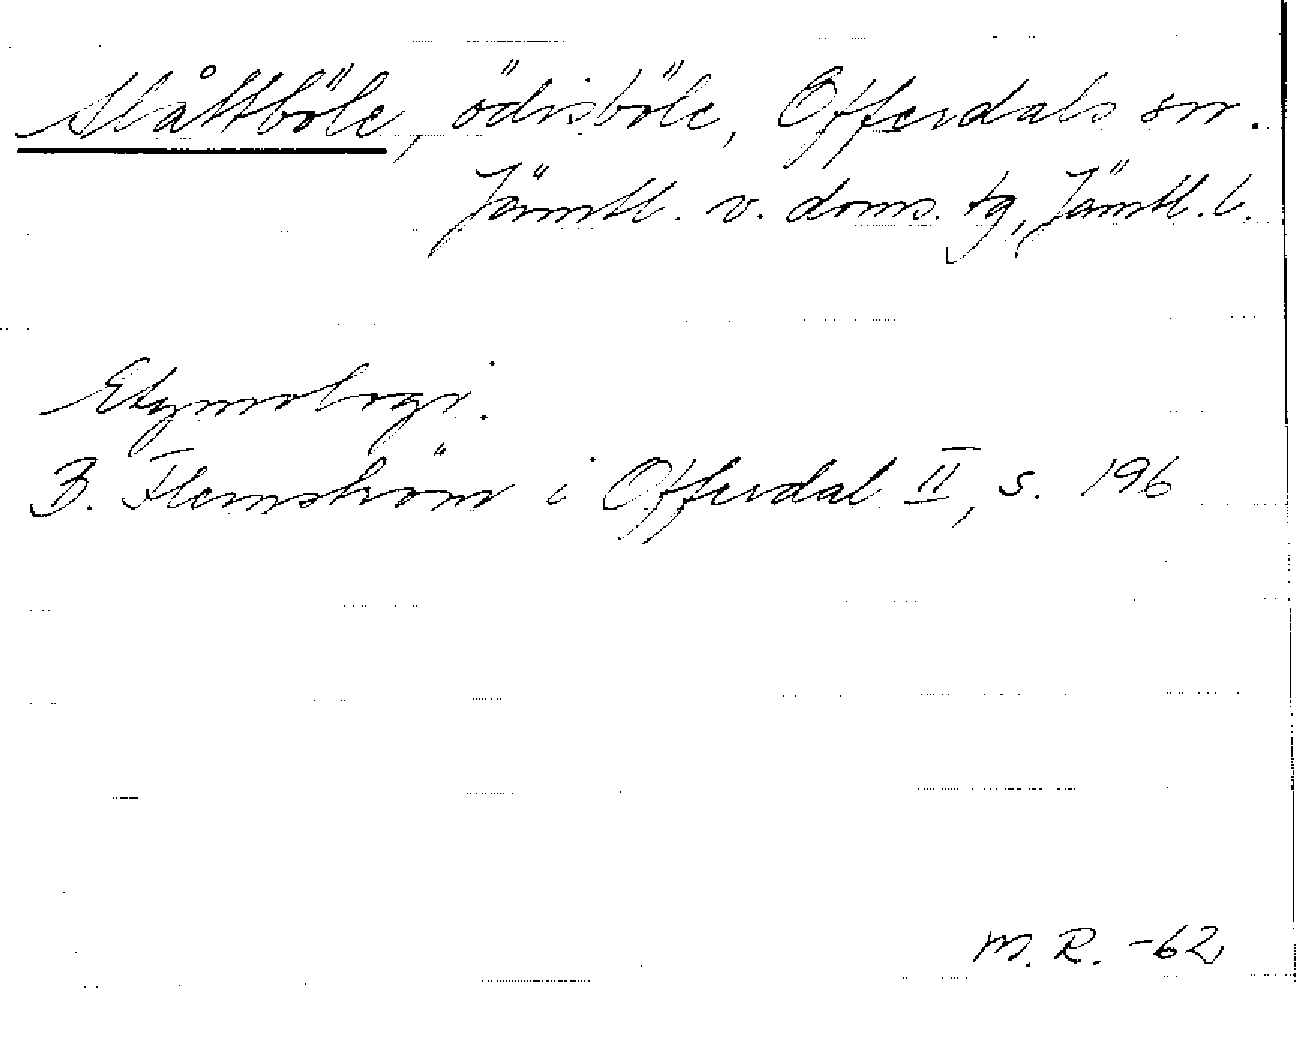 Slåttböle, ödesböle, Offerdals sn.
Jämtl. v. doms. tg, Jämtl. l.
Etymologi.
B. Flemström i Offerdal II, s. 196
M. R. -62